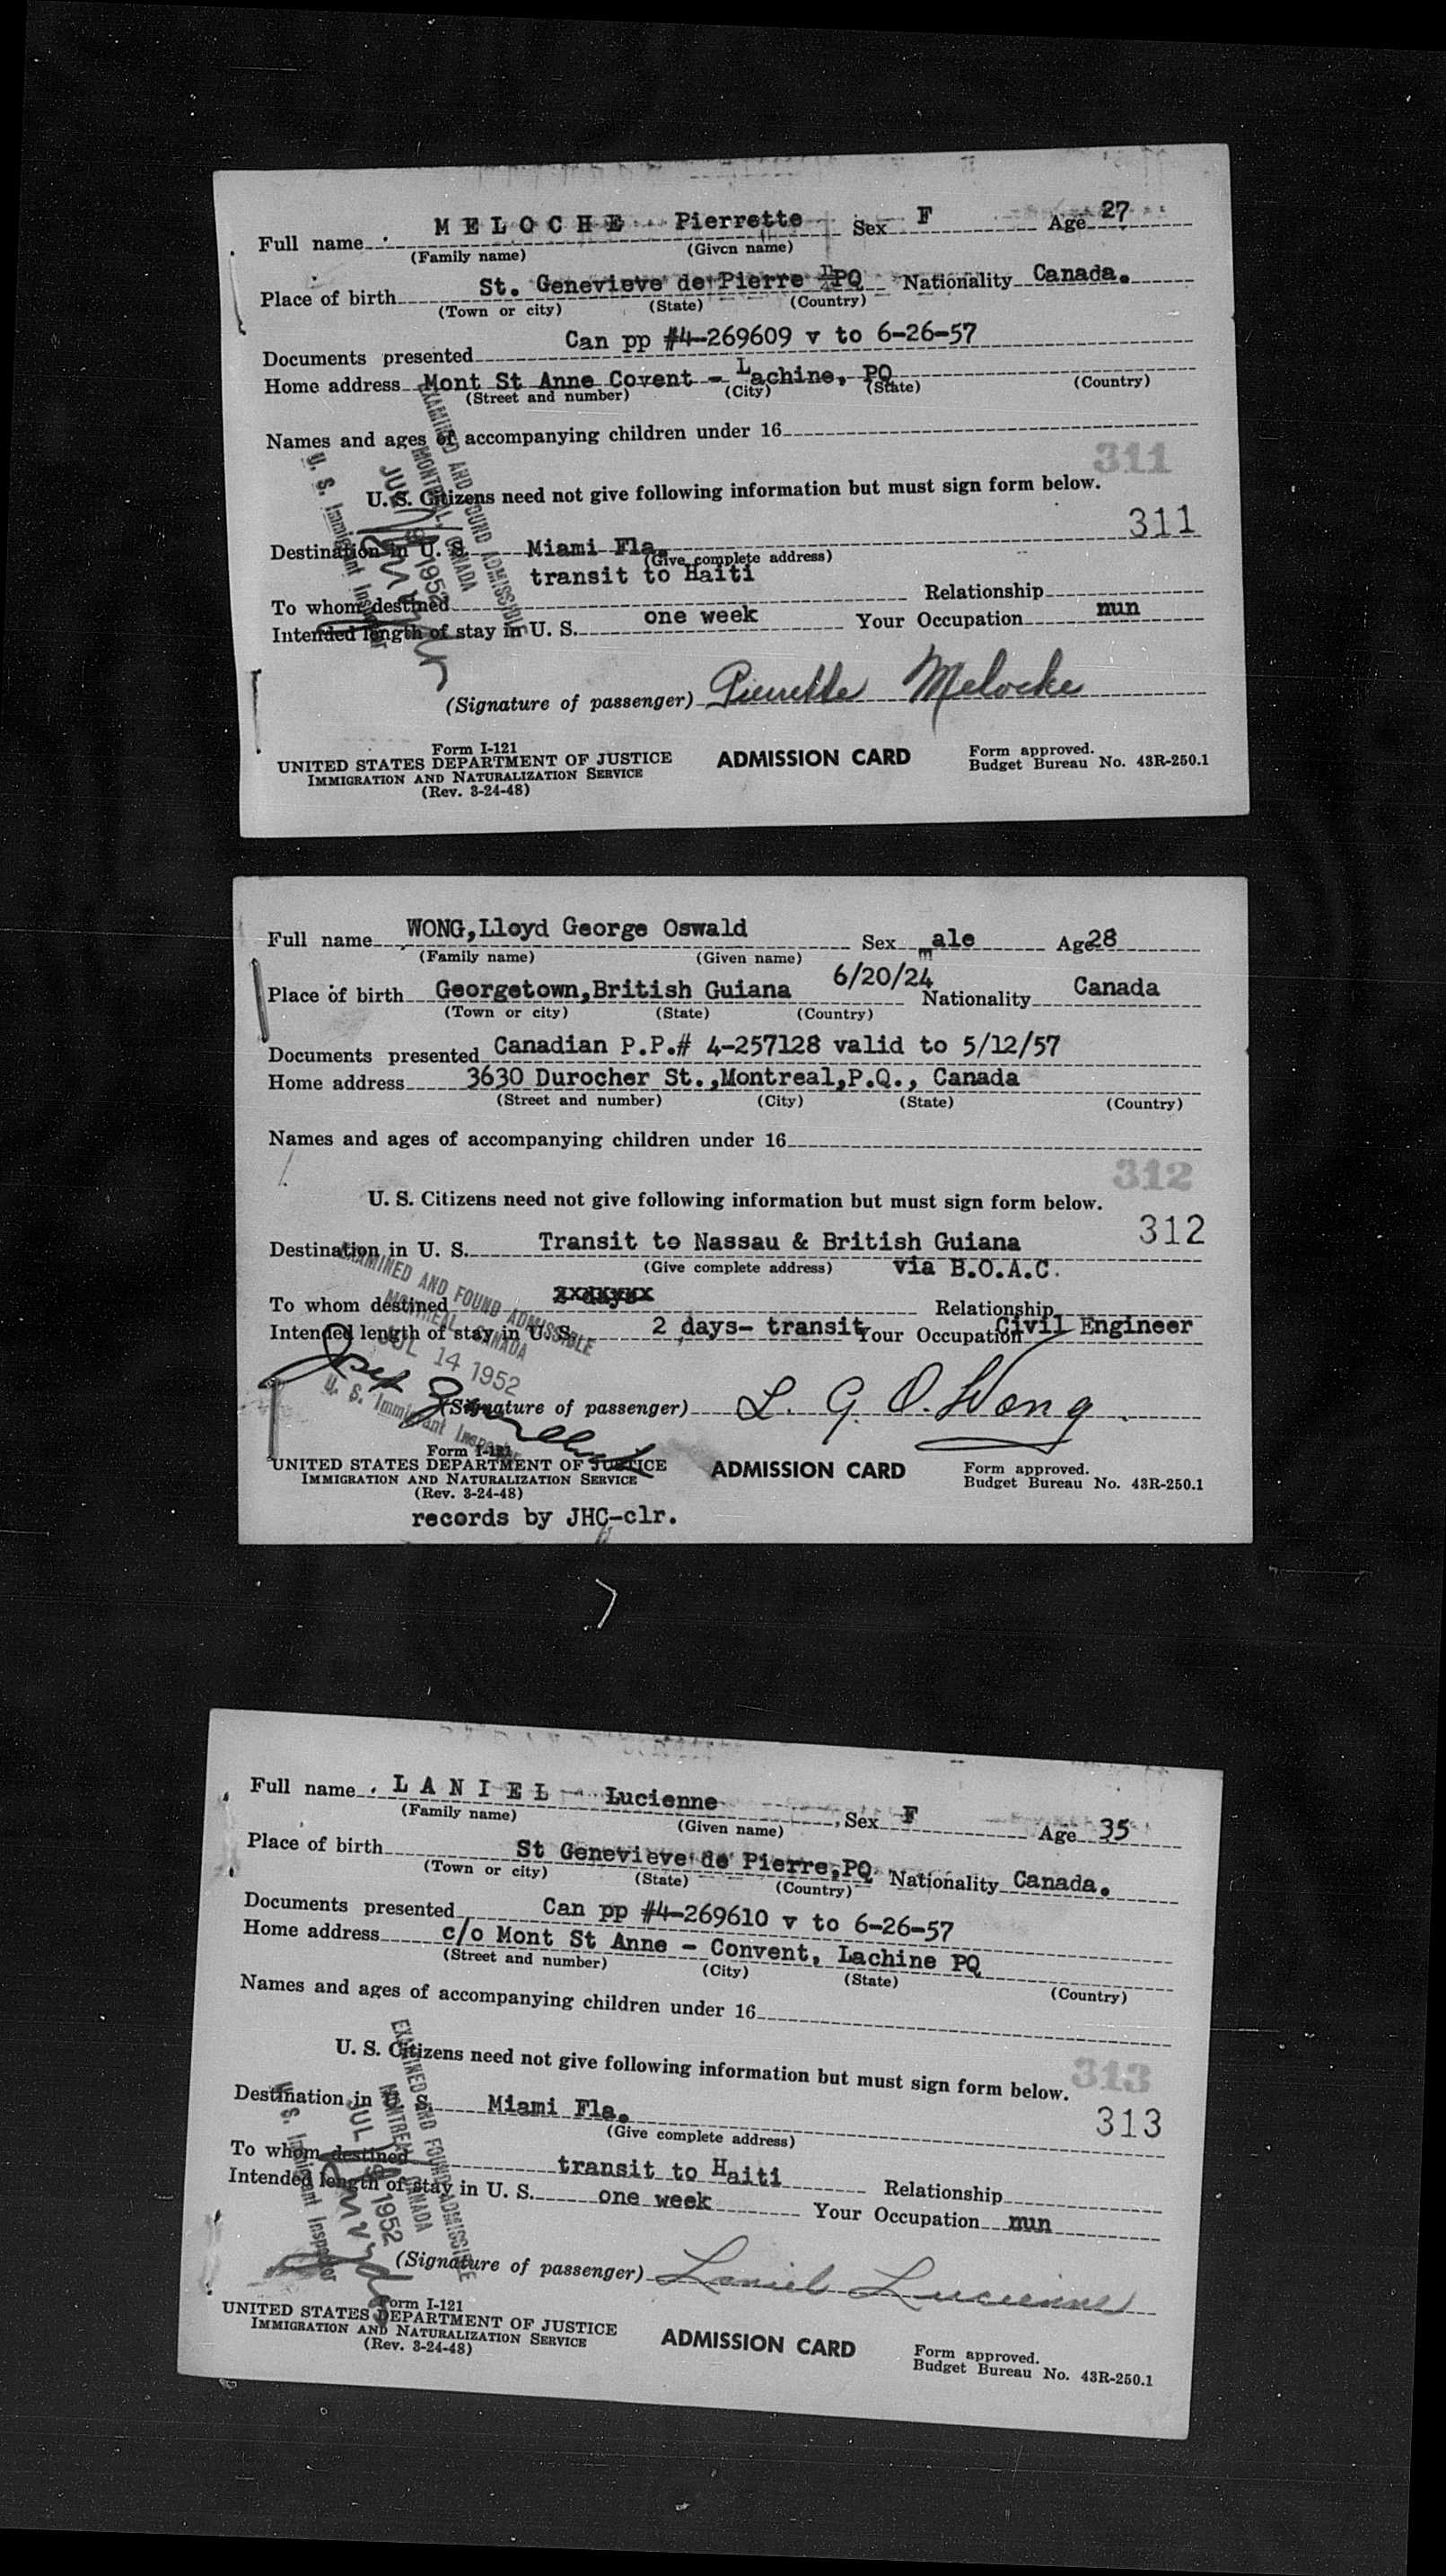 Full name M E L O C H E Pierrette Sex F Age 27
(Family name) (Given name)
Place of birth St. Genevieve de Pierre PQ Nationality Canada.
(Town or city) (State) (Country)
Documents presented Can pp #4-269609 v to 6-26-57
Home address Mont St Anne Covent - Lachine, PQ
(Street and number) (City) (State) (Country)
Names and ages of accompanying children under 16
311
U. S. Citizens need not give following information but must sign form below.
311
Destination in U. S. Miami Fla.
(Give complete address)
transit to Haiti
To whom destined Relationship
Intended length of stay in U. S. one week Your Occupation nun
EXAMINED AND FOUND ADMISSIBLE
MONTREAL, CANADA
JUL 9 1952
U. S. Immigrant Inspector
(Signature of passenger) Pierrette Meloche
Form I-121
UNITED STATES DEPARTMENT OF JUSTICE
IMMIGRATION AND NATURALIZATION SERVICE
(Rev. 3-24-48)
ADMISSION CARD
Form approved.
Budget Bureau No. 43R-250.1
Full name WONG,Lloyd George Oswald Sex male Age 28
(Family name) (Given name)
6/20/24
Place of birth Georgetown,British Guiana Nationality Canada
(Town or city) (State) (Country)
Documents presented Canadian P.P.# 4-257128 valid to 5/12/57
Home address 3630 Durocher St.,Montreal,P.Q., Canada
(Street and number) (City) (State) (Country)
Names and ages of accompanying children under 16
312
U. S. Citizens need not give following information but must sign form below.
312
Destination in U. S. Transit to Nassau & British Guiana
(Give complete address) via B.O.A.C.
To whom destined Relationship
Intended length of stay in U. S. 2 days- transit Your Occupation Civil Engineer
EXAMINED AND FOUND ADMISSIBLE
MONTREAL, CANADA
JUL 14 1952
U. S. Immigrant Inspector
(Signature of passenger) L. G. O. Wong
Form I-121
UNITED STATES DEPARTMENT OF JUSTICE
IMMIGRATION AND NATURALIZATION SERVICE
(Rev. 3-24-48)
ADMISSION CARD
Form approved.
Budget Bureau No. 43R-250.1
records by JHC-clr.
Full name L A N I E L Lucienne Sex F Age 35
(Family name) (Given name)
Place of birth St Genevieve de Pierre,PQ Nationality Canada.
(Town or city) (State) (Country)
Documents presented Can pp #4-269610 v to 6-26-57
Home address c/o Mont St Anne - Convent, Lachine PQ
(Street and number) (City) (State) (Country)
Names and ages of accompanying children under 16
313
U. S. Citizens need not give following information but must sign form below.
313
Destination in U. S. Miami Fla.
(Give complete address)
To whom destined transit to Haiti Relationship
Intended length of stay in U. S. one week Your Occupation nun
EXAMINED AND FOUND ADMISSIBLE
MONTREAL, CANADA
JUL 9 1952
U. S. Immigrant Inspector
(Signature of passenger) Laniel Lucienne
Form I-121
UNITED STATES DEPARTMENT OF JUSTICE
IMMIGRATION AND NATURALIZATION SERVICE
(Rev. 3-24-48)
ADMISSION CARD
Form approved.
Budget Bureau No. 43R-250.1